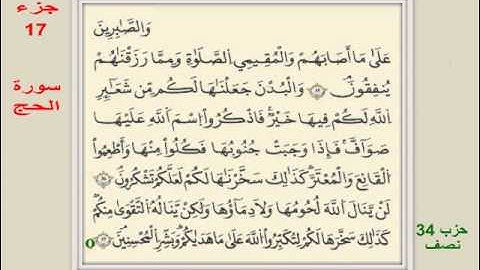 جزء
17
سورة
الحج
وَالصَّابِرِينَ
عَلَىٰ مَا أَصَابَهُمْ وَالْمُقِيمِي الصَّلَاةِ وَمِمَّا رَزَقْنَاهُمْ
يُنفِقُونَ وَالْبُدْنَ جَعَلْنَاهَا لَكُم مِّن شَعَائِرِ
اللَّهِ لَكُمْ فِيهَا خَيْرٌ فَاذْكُرُوا اسْمَ اللَّهِ عَلَيْهَا
صَوَافَّ فَإِذَا وَجَبَتْ جُنُوبُهَا فَكُلُوا مِنْهَا وَأَطْعِمُوا
الْقَانِعَ وَالْمُعْتَرَّ كَذَٰلِكَ سَخَّرْنَاهَا لَكُمْ لَعَلَّكُمْ تَشْكُرُونَ
لَن يَنَالَ اللَّهَ لُحُومُهَا وَلَا دِمَاؤُهَا وَلَٰكِن يَنَالُهُ التَّقْوَىٰ مِنكُمْ
كَذَٰلِكَ سَخَّرَهَا لَكُمْ لِتُكَبِّرُوا اللَّهَ عَلَىٰ مَا هَدَاكُمْ وَبَشِّرِ الْمُحْسِنِينَ
حزب 34
نصف